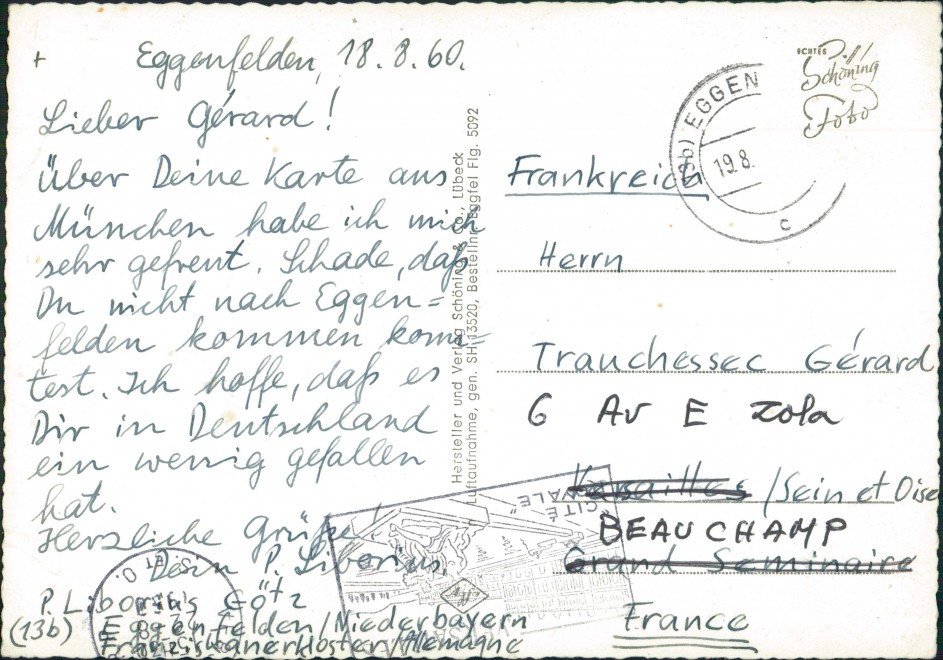 +
Eggenfelden, 18.8.60.
Lieber Gérard!
Über Deine Karte aus
München habe ich mich
sehr gefreut. Schade, daß
Du nicht nach Eggen=
felden kommen konn=
test. Ich hoffe, daß es
Dir in Deutschland
ein wenig gefallen
hat.
Herzliche Grüße
Dein P. Liborius.
P. Liborius Götz
(13b) Eggenfelden/Niederbayern
Franziskanerkloster/Allemagne
Hersteller und Verlag Schöning & Co., Lübeck
Luftaufnahme, gen. SH 13520, Bestellnr. Eggfel Flg. 5092
ECHTES
Schöning
Foto
(13b) EGGEN
19.8.
c
Frankreich
Herrn
Trauchessec Gérard
6 Av E Zola
Versailles /Sein et Oise
BEAUCHAMP
Grand Seminaire
France
CITÉ
ROYALE
S. ET O.